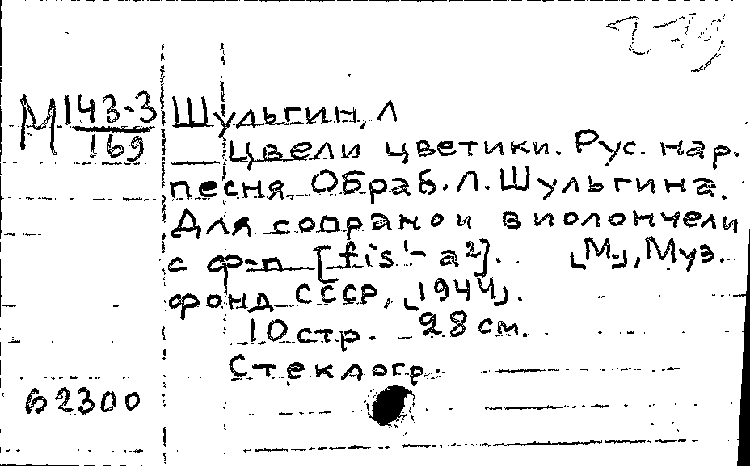 279
М 143-3 Шульгин, Л
169 Цвели цветики. Рус. нар.
песня Обраб. Л. Шульгина.
Для сопрано и виолончели
с ф-п [fis¹- a²]. [М.], Муз.
фонд СССР, [1944].
10 стр. 28 см.
Стеклогр.
62300